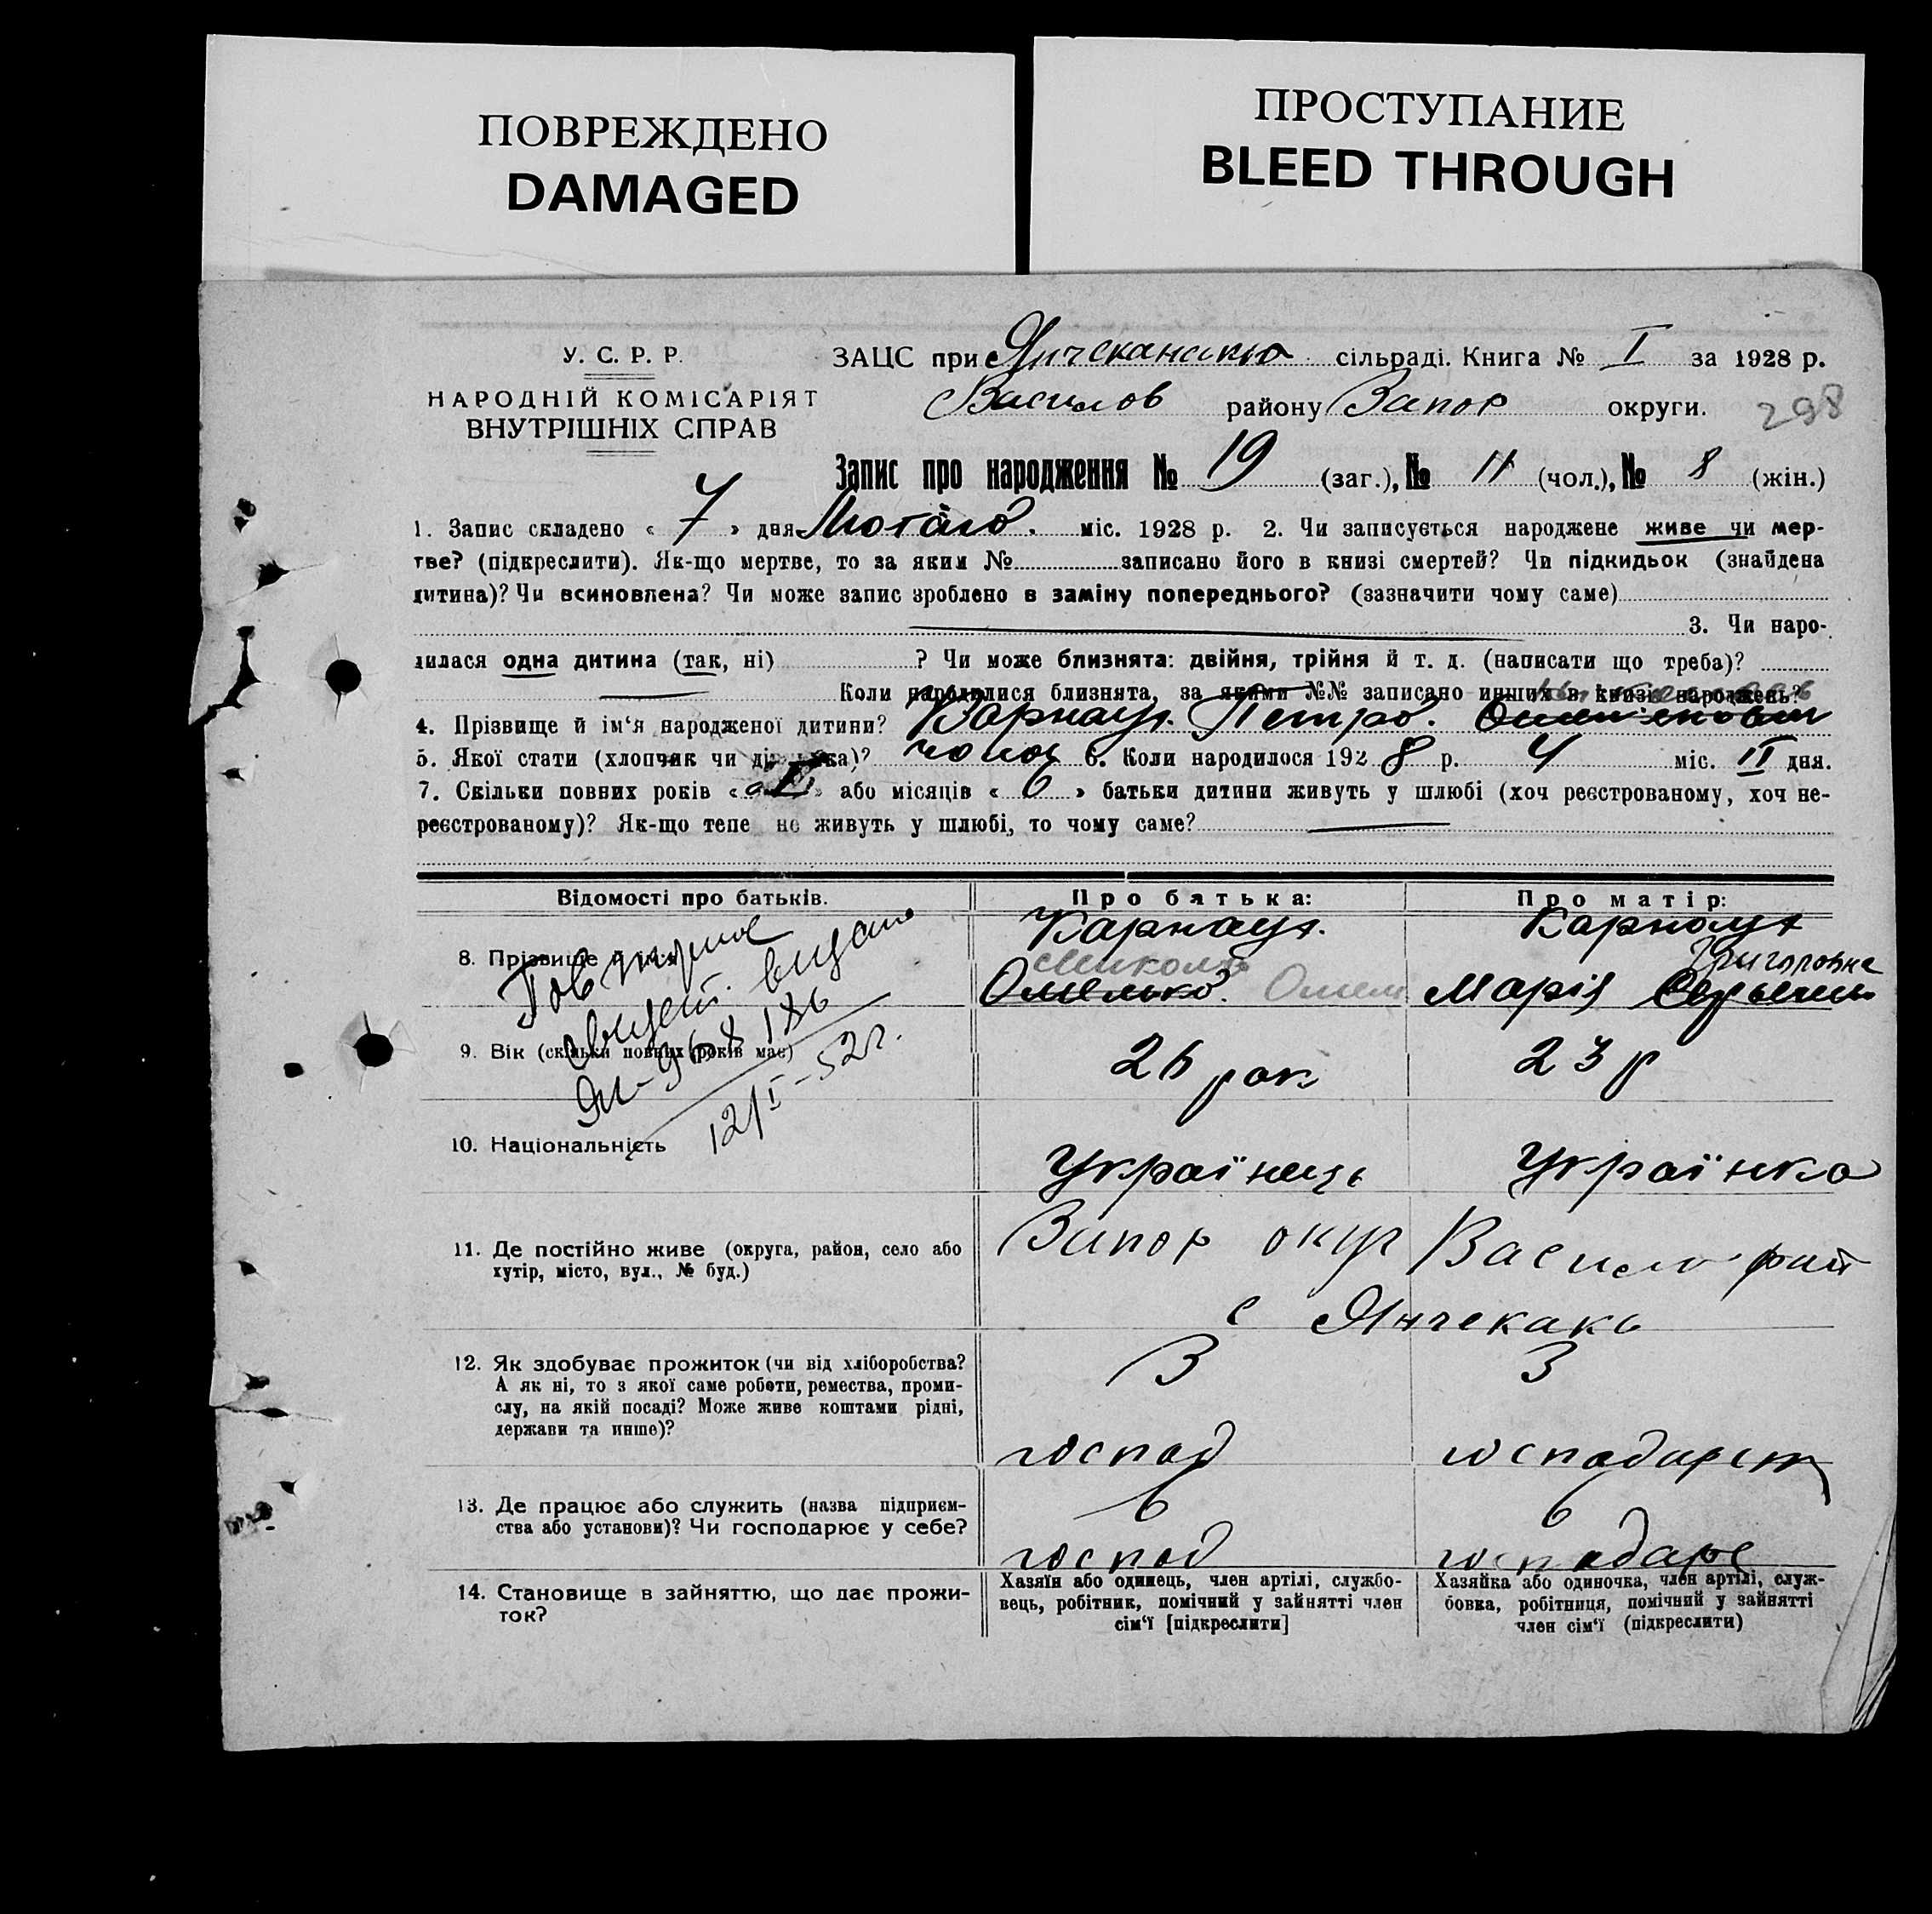 ПОВРЕЖДЕНО
DAMAGED
ПРОСТУПАНИЕ
BLEED THROUGH
У. С. Р. Р.
НАРОДНІЙ КОМІСАРІЯТ
ВНУТРІШНІХ СПРАВ
ЗАЦС при сільраді. Книга № I за 1928 р.
Василов району Запор округи. 298
Запис про народження № 19 (заг.), № 11 (чол.), № 8 (жін.)
1. Запис складено « 7 » дня Лютого. міс. 1928 р. 2. Чи записується народжене живе чи мер-
тве? (підкреслити). Як-що мертве, то за яким № записано його в книзі смертей? Чи підкидьок (знайдена
дитина)? Чи всиновлена? Чи може запис зроблено в заміну попереднього? (зазначити чому саме)
3. Чи наро-
дилася одна дитина (так, ні) ? Чи може близнята: двійня, трійня й т. д. (написати що треба)?
Коли народилися близнята, за якими №№ записано инших в книзі народжень?
4. Прізвище й ім‘я народженої дитини? Карнаух. Петро.
5. Якої стати (хлопчик чи дівчинка)? чолов 6. Коли народилося 1928 р. 4 міс. II дня.
7. Скільки повних років « » або місяців « 6 » батьки дитини живуть у шлюбі (хоч реєстрованому, хоч не-
реєстрованому)? Як-що тепе не живуть у шлюбі, то чому саме?
Відомості про батьків. Про батька: Про матір:
8. Прізвище й ім‘я Карнаух. Карнаух
Микола Григоровна
Омелько. Омел Марія
Повторное
свидет. видано
968186
12/I-52г.
9. Вік (скільки повних років має) 26 рок 23 р
10. Національність Українець Українка
11. Де постійно живе (округа, район, село або
хутір, місто, вул., № буд.)
Запор округ Васило рай
с Янчекакь
12. Як здобуває прожиток (чи від хліборобства?
А як ні, то з якої саме роботи, ремества, проми-
слу, на якій посаді? Може живе коштами рідні,
держави та инше)?
З З
господ господарст
13. Де працює або служить (назва підприєм-
ства або установи)? Чи господарює у себе?
в в
господ господарс
14. Становище в зайняттю, що дає прожи-
ток?
Хазяїн або одинець, член артілі, службо-
вець, робітник, помічний у зайнятті член
сім‘ї [підкреслити]
Хазяйка або одиночка, член артілі, служ-
бовка, робітниця, помічний у зайнятті
член сім‘ї (підкреслити)